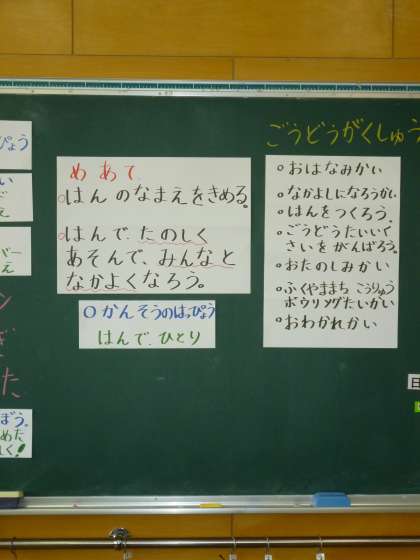 ごうどうがくしゅう
めあて
○はんのなまえをきめる。
○はんで、たのしく
あそんで、みんなと
なかよくなろう。
○かんそうのはっぴょう
はんで、ひとり
○おはなみかい
○なかよしになろうかい
○はんをつくろう。
○ごうどうたいいくさ
さいをがんばろう。
○おたのしみかい
○ふくやままち こうりゅう
ボウリングたいかい
○おわかれかい
ぴょう
い
ど
え
バー
え
ン
ぎ
た
ぼう。
めた
しく!
日